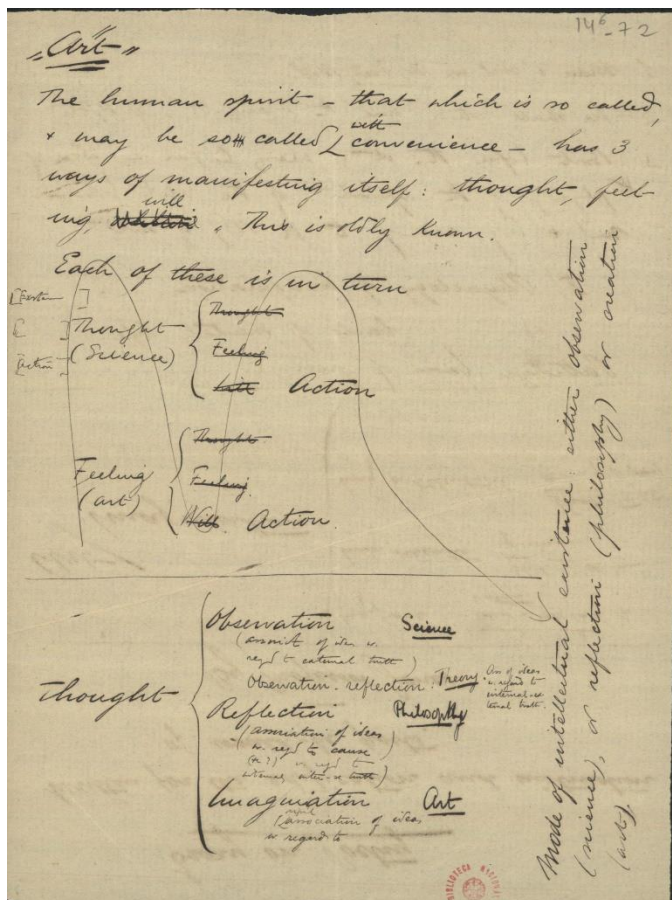 14⁶-72
"Art"
The human spirit – that which is so called,
& may be so called with convenience – has 3
ways of manifesting itself: thought, feel
ing, will. This is oldly known.
Each of these is in turn
Thought
(Science)
Thought
Feeling
Will Action
[action]
Feeling
(art)
Thought
Feeling
Will. Action.
Thought
Observation Science
(associat. of ideas w.
regd to external truth)
Observation. reflection. Theory. An of ideas
w regard to
internal-ex
ternal truth.
Reflection Philosophy
(association of ideas
w. regd to cause
(or?) w regd to
internal, truth)
Imagination Art
(association of ideas
w regard to
Mode of intellectual existence: either observation
(science), or reflection (philosophy) or creation
(art).
BIBLIOTECA NACIONAL